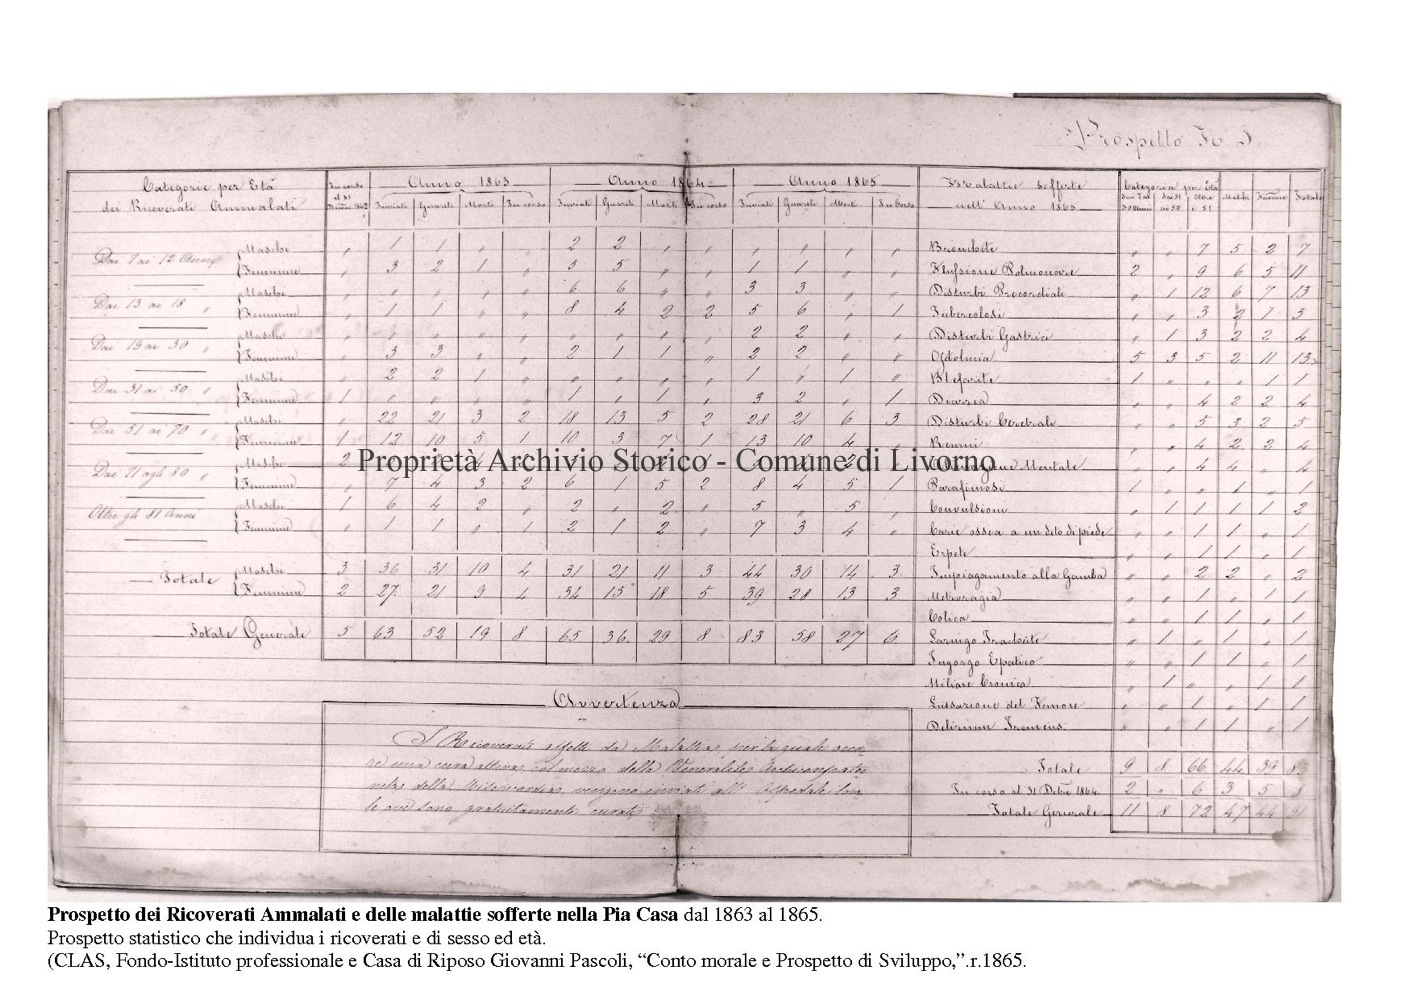 Prospetto N. 3.
Categorie per Età
dei Ricoverati Ammalati
In corso
al 31
Anno 1863
Anno 1864
Anno 1865
Malattie sofferte
nell' Anno 1865
Categoria per Età
Maschi
Femmine
Totale
Inviati Guariti Morti In corso Inviati Guariti Morti In corso Inviati Guariti Morti In corso
Dai 7 ai 12 Anni
Maschi " 1 1 " " 2 2 " " " " " "
Femmine " 3 2 1 " 5 5 " " 1 1 " "
Dai 13 ai 18 "
Maschi " " " " " 6 6 " " 3 3 " "
Femmine " 1 1 " " 8 4 2 2 5 6 " 1
Dai 19 ai 30 "
Maschi " " " " " " " " " 2 2 " "
Femmine " 3 3 " " 2 1 1 " 2 2 " "
Dai 31 ai 50 "
Maschi " 2 2 1 " " " " " 1 " 1 "
Femmine 1 " " " " 1 " 1 " 3 2 " 1
Dai 51 ai 70 "
Maschi " 22 21 3 2 18 13 5 2 28 21 6 3
Femmine 1 12 10 5 1 10 3 7 1 13 10 4 "
Dai 71 agli 80 "
Maschi 2
Femmine " 7 4 3 2 6 1 5 2 8 4 5 1
Oltre gli 81 Anni
Maschi 1 6 4 2 " 2 " 2 " 5 " 5 "
Femmine " 1 1 " 1 2 1 2 " 7 3 4 "
Totale
Maschi 3 36 31 10 4 31 21 11 3 44 30 14 3
Femmine 2 27 21 9 4 34 15 18 5 39 28 13 3
Totale Generale 5 63 52 19 8 65 36 29 8 83 58 27 6
Bronchite " " 7 5 2 7
Flussione Polmonare 2 " 9 6 5 11
Disturbi Precordiali " 1 12 6 7 13
Tubercolosi " " 3 2 1 3
Disturbi Gastrici " 1 3 2 2 4
Oftalmia 5 3 5 2 11 13
Blefarite 1 " " " 1 1
Diarrea " " 4 2 2 4
Disturbi Cerebrali " " 5 3 2 5
Reumi " " 4 2 2 4
Alienazione Mentale " " 4 4 " 4
Parafimosi 1 " " 1 " 1
Convulsioni " 1 1 1 1 2
Carie ossea a un dito di piede " " 1 1 " 1
Erpete " " 1 1 " 1
Impiagamento alla Gamba " " 2 2 " 2
Metroragia " " 1 " 1 1
Colica " " 1 1 " 1
Laringo Tracheite " 1 " 1 " 1
Ingorgo Epatico " " 1 1 " 1
Miliare Cronica " 1 " " 1 1
Lussazione del Femore " " 1 1 " 1
Delirium Tremens " " 1 1 " 1
Totale 9 8 66 44 39 83
In corso al 31 Dbre 1864 2 " 6 3 5
Totale Generale 11 8 72 47 44 91
Avvertenza
I Ricoverati affetti da Malattia, per la quale occor-
re una cura attiva col mezzo della Venerabile Arciconfrater-
nita della Misericordia vengono inviati all' Ospedale
ove sono gratuitamente curati
Proprietà Archivio Storico - Comune di Livorno
Prospetto dei Ricoverati Ammalati e delle malattie sofferte nella Pia Casa dal 1863 al 1865.
Prospetto statistico che individua i ricoverati e di sesso ed età.
(CLAS, Fondo-Istituto professionale e Casa di Riposo Giovanni Pascoli, “Conto morale e Prospetto di Sviluppo,”.r.1865.